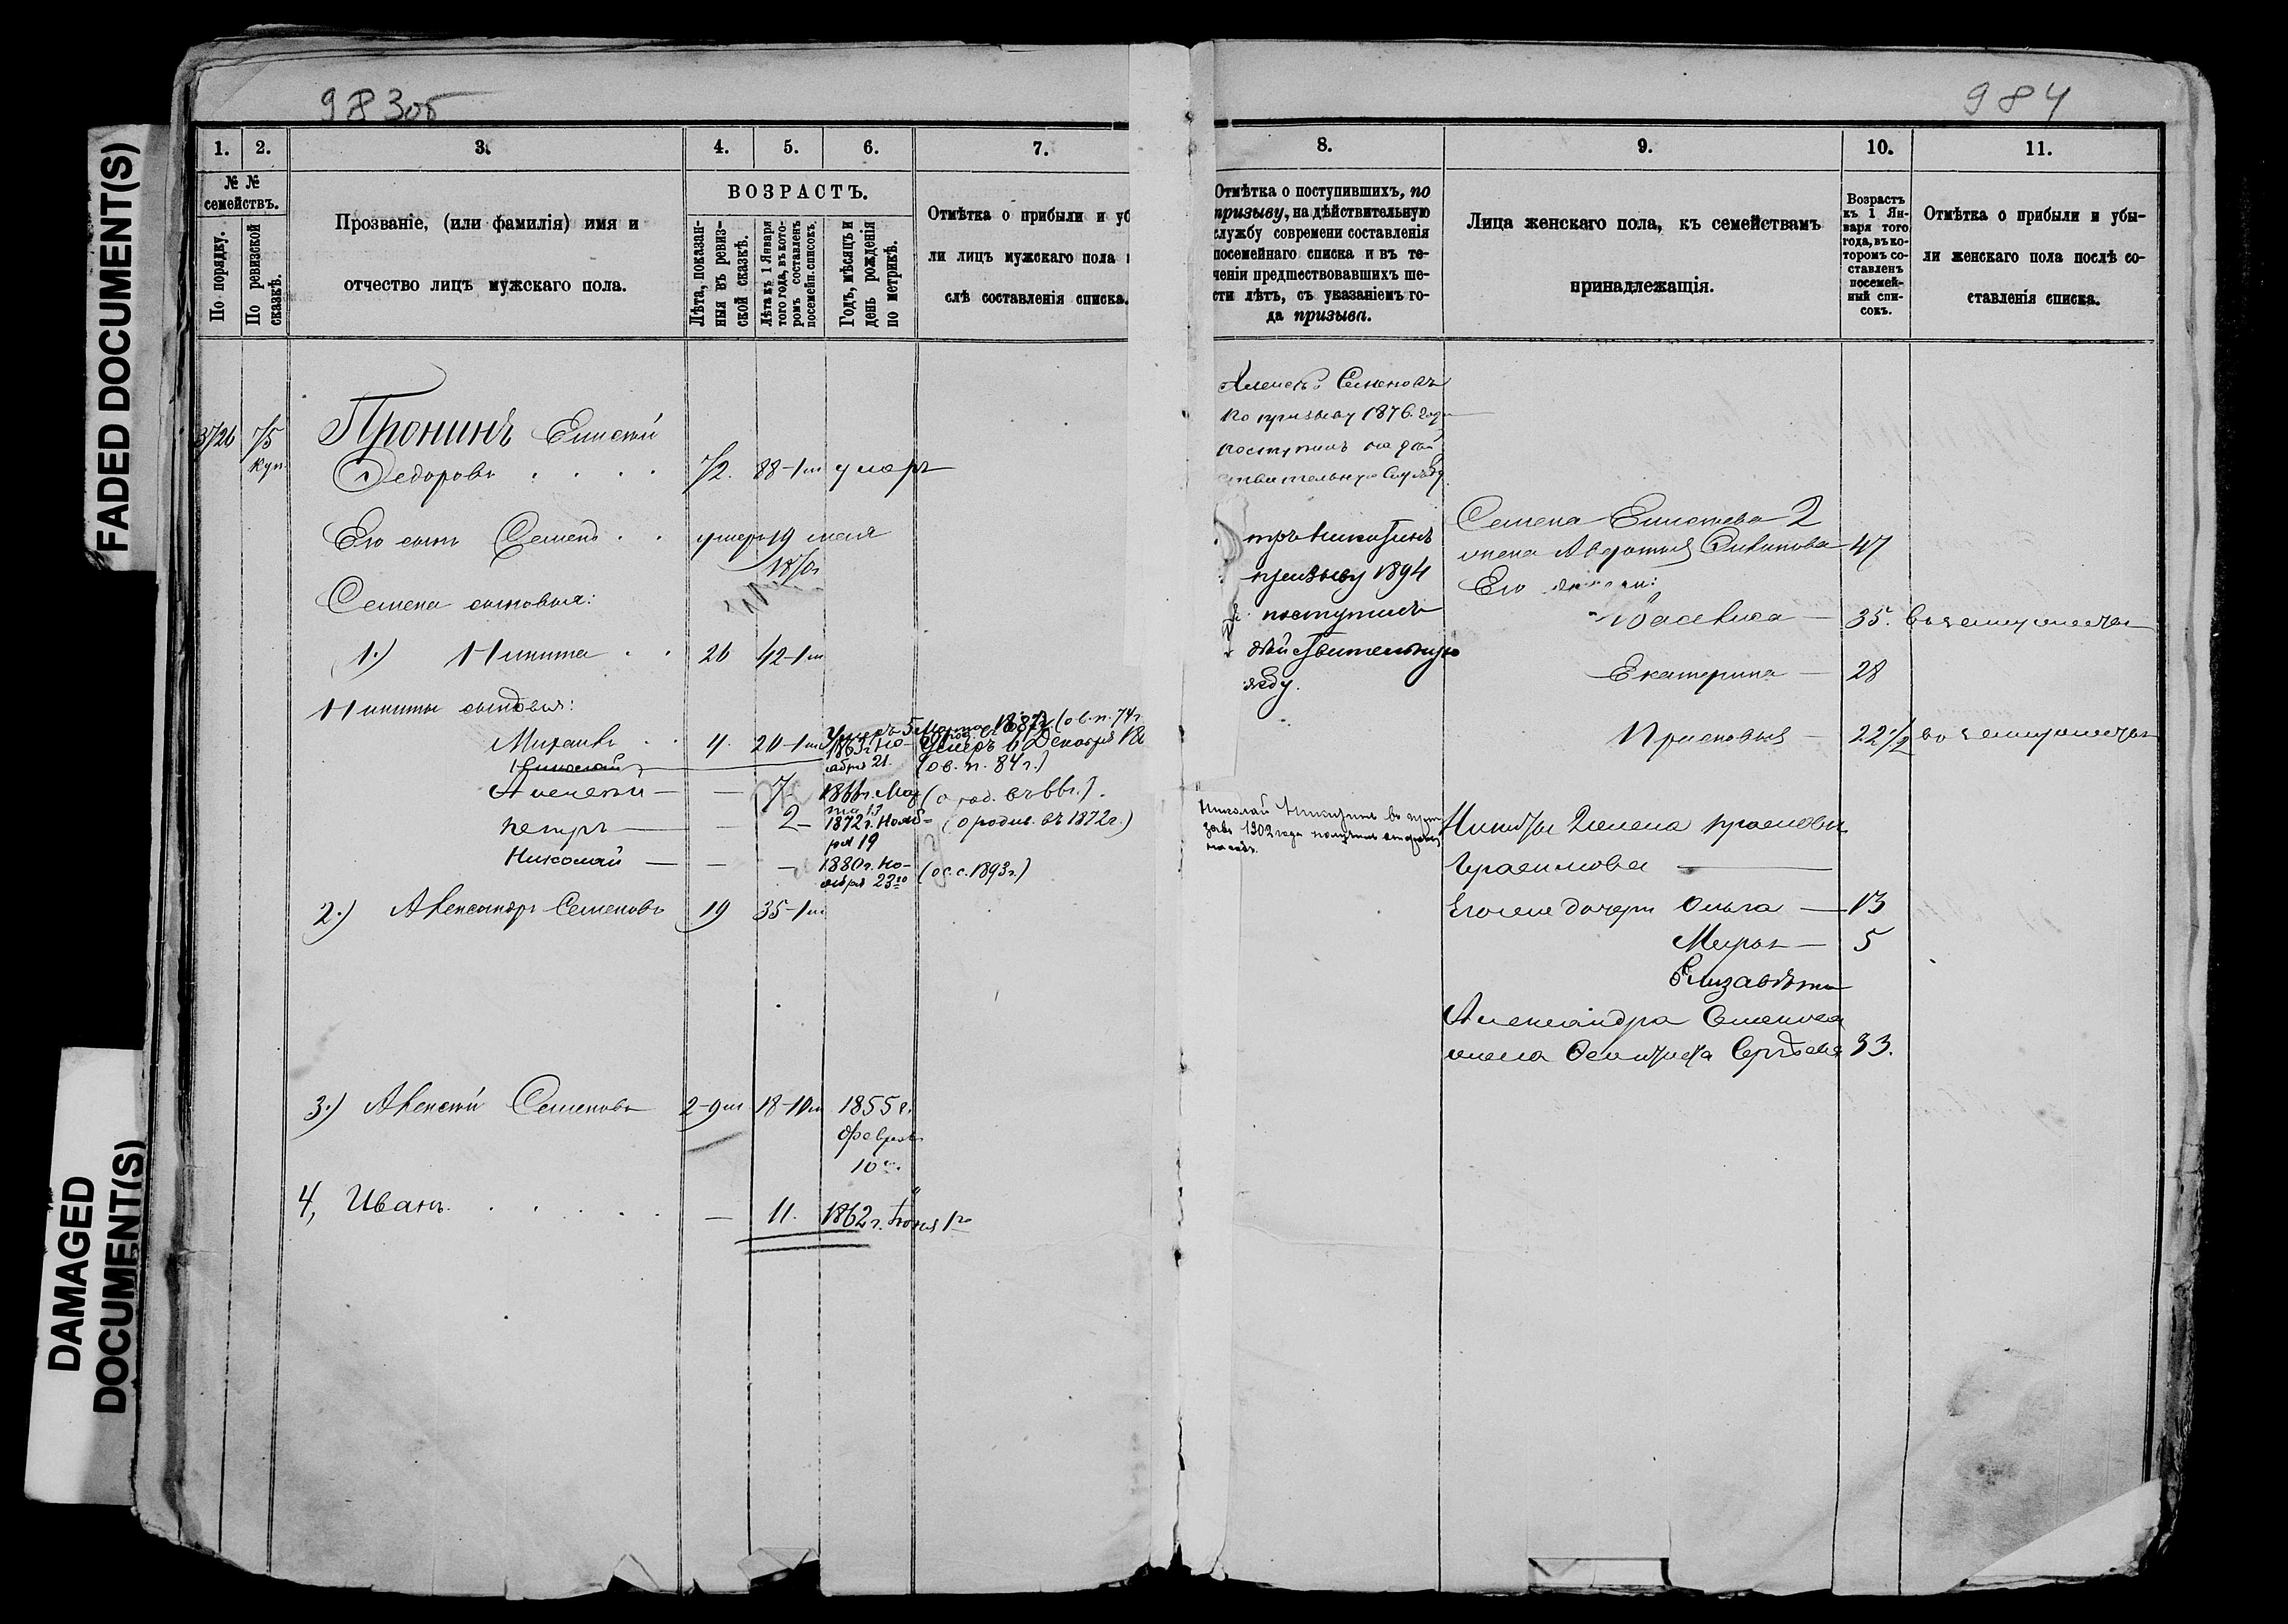 FADED DOCUMENT(S)
DAMAGED
DOCUMENT(S)
983об
984
1.
2.
3.
4.
5.
6.
7.
№ №
семействъ.
По порядку.
По ревизской
сказкѣ.
Прозваніе, (или фамилія) имя и
отчество лицъ мужскаго пола.
ВОЗРАСТЪ.
Лѣта, показан-
ныя въ ревиз-
ской сказкѣ.
Лѣта къ 1 Января
того года, въ кото-
ромъ составленъ
посемейн. списокъ.
Годъ, мѣсяцъ и
день рожденія
по метрикѣ.
Отмѣтка о прибыли и уб
ли лицъ мужскаго пола
слѣ составленія списка.
3726
75
куп
Пронинъ Елисѣй
Ѳедоровъ
72.
88-1м
умеръ
Его сынъ Семенъ
умеръ 19 мая
1870г
Семена сыновья:
1.) Никита
26
42-1м
Никиты сыновья:
Михаилъ
4.
20-1м
Николай
1863г. Но-
ября 21.
Умеръ 6 Декабря 18
(ов. п. 84г.)
Алексѣй —
—
7
1866г. Мар
та 13
Петръ —
—
2-
1872г. Нояб-
ря 19
(о родив. въ 1872г.)
Николай —
—
—
1880г. Но-
ября 23го
(ос. с. 1893г.)
2.) Александръ Семеновъ
19
35-1м
3.) Алексѣй Семеновъ
2-9м
18-10м
1855г.
Февраля
10го.
4, Иванъ
—
11.
1862г. Іюня 1го
8.
9.
10.
11.
Отмѣтка о поступившихъ, по
призыву, на дѣйствительную
службу современи составленія
посемейнаго списка и въ те-
ченіи предшествовавшихъ ше-
сти лѣтъ, съ указаніемъ го-
да призыва.
Лица женскаго пола, къ семействамъ
принадлежащія.
Возрастъ
къ 1 Ян-
варя того
года, въ ко-
торомъ со-
ставленъ
посемей-
ный спи-
сокъ.
Отмѣтка о прибыли и убы-
ли женскаго пола послѣ со-
ставленія списка.
Алексѣй Семеновъ
по призыву 1876 года
поступилъ на дѣй
ствительную службу
тръ Никитинъ
призыву 1894
поступилъ
дѣйствительную
жбу.
Николай Никитинъ въ при
зывъ 1902 года получилъ
Семена Елисѣева 2
жена Авдотья 47
Его дочери:
Василиса — 35. въ замужествѣ
Екатерина — 28
Прасковья — 22 1/2 въ замужествѣ
Никиты 2 жена Прасковья
Герасимова —
Его же дочери Ольга — 13
Марья — 5
Елизавѣта
Александра Семенова
жена Сергѣева 33.